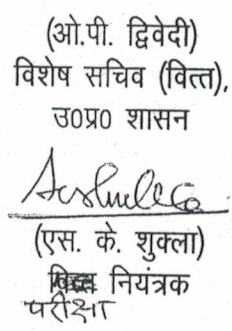 (ओ.पी. द्विवेदी)
विशेष सचिव (वित्त),
उ0प्र0 शासन
(एस. के. शुक्ला)
नियंत्रक
परीक्षा